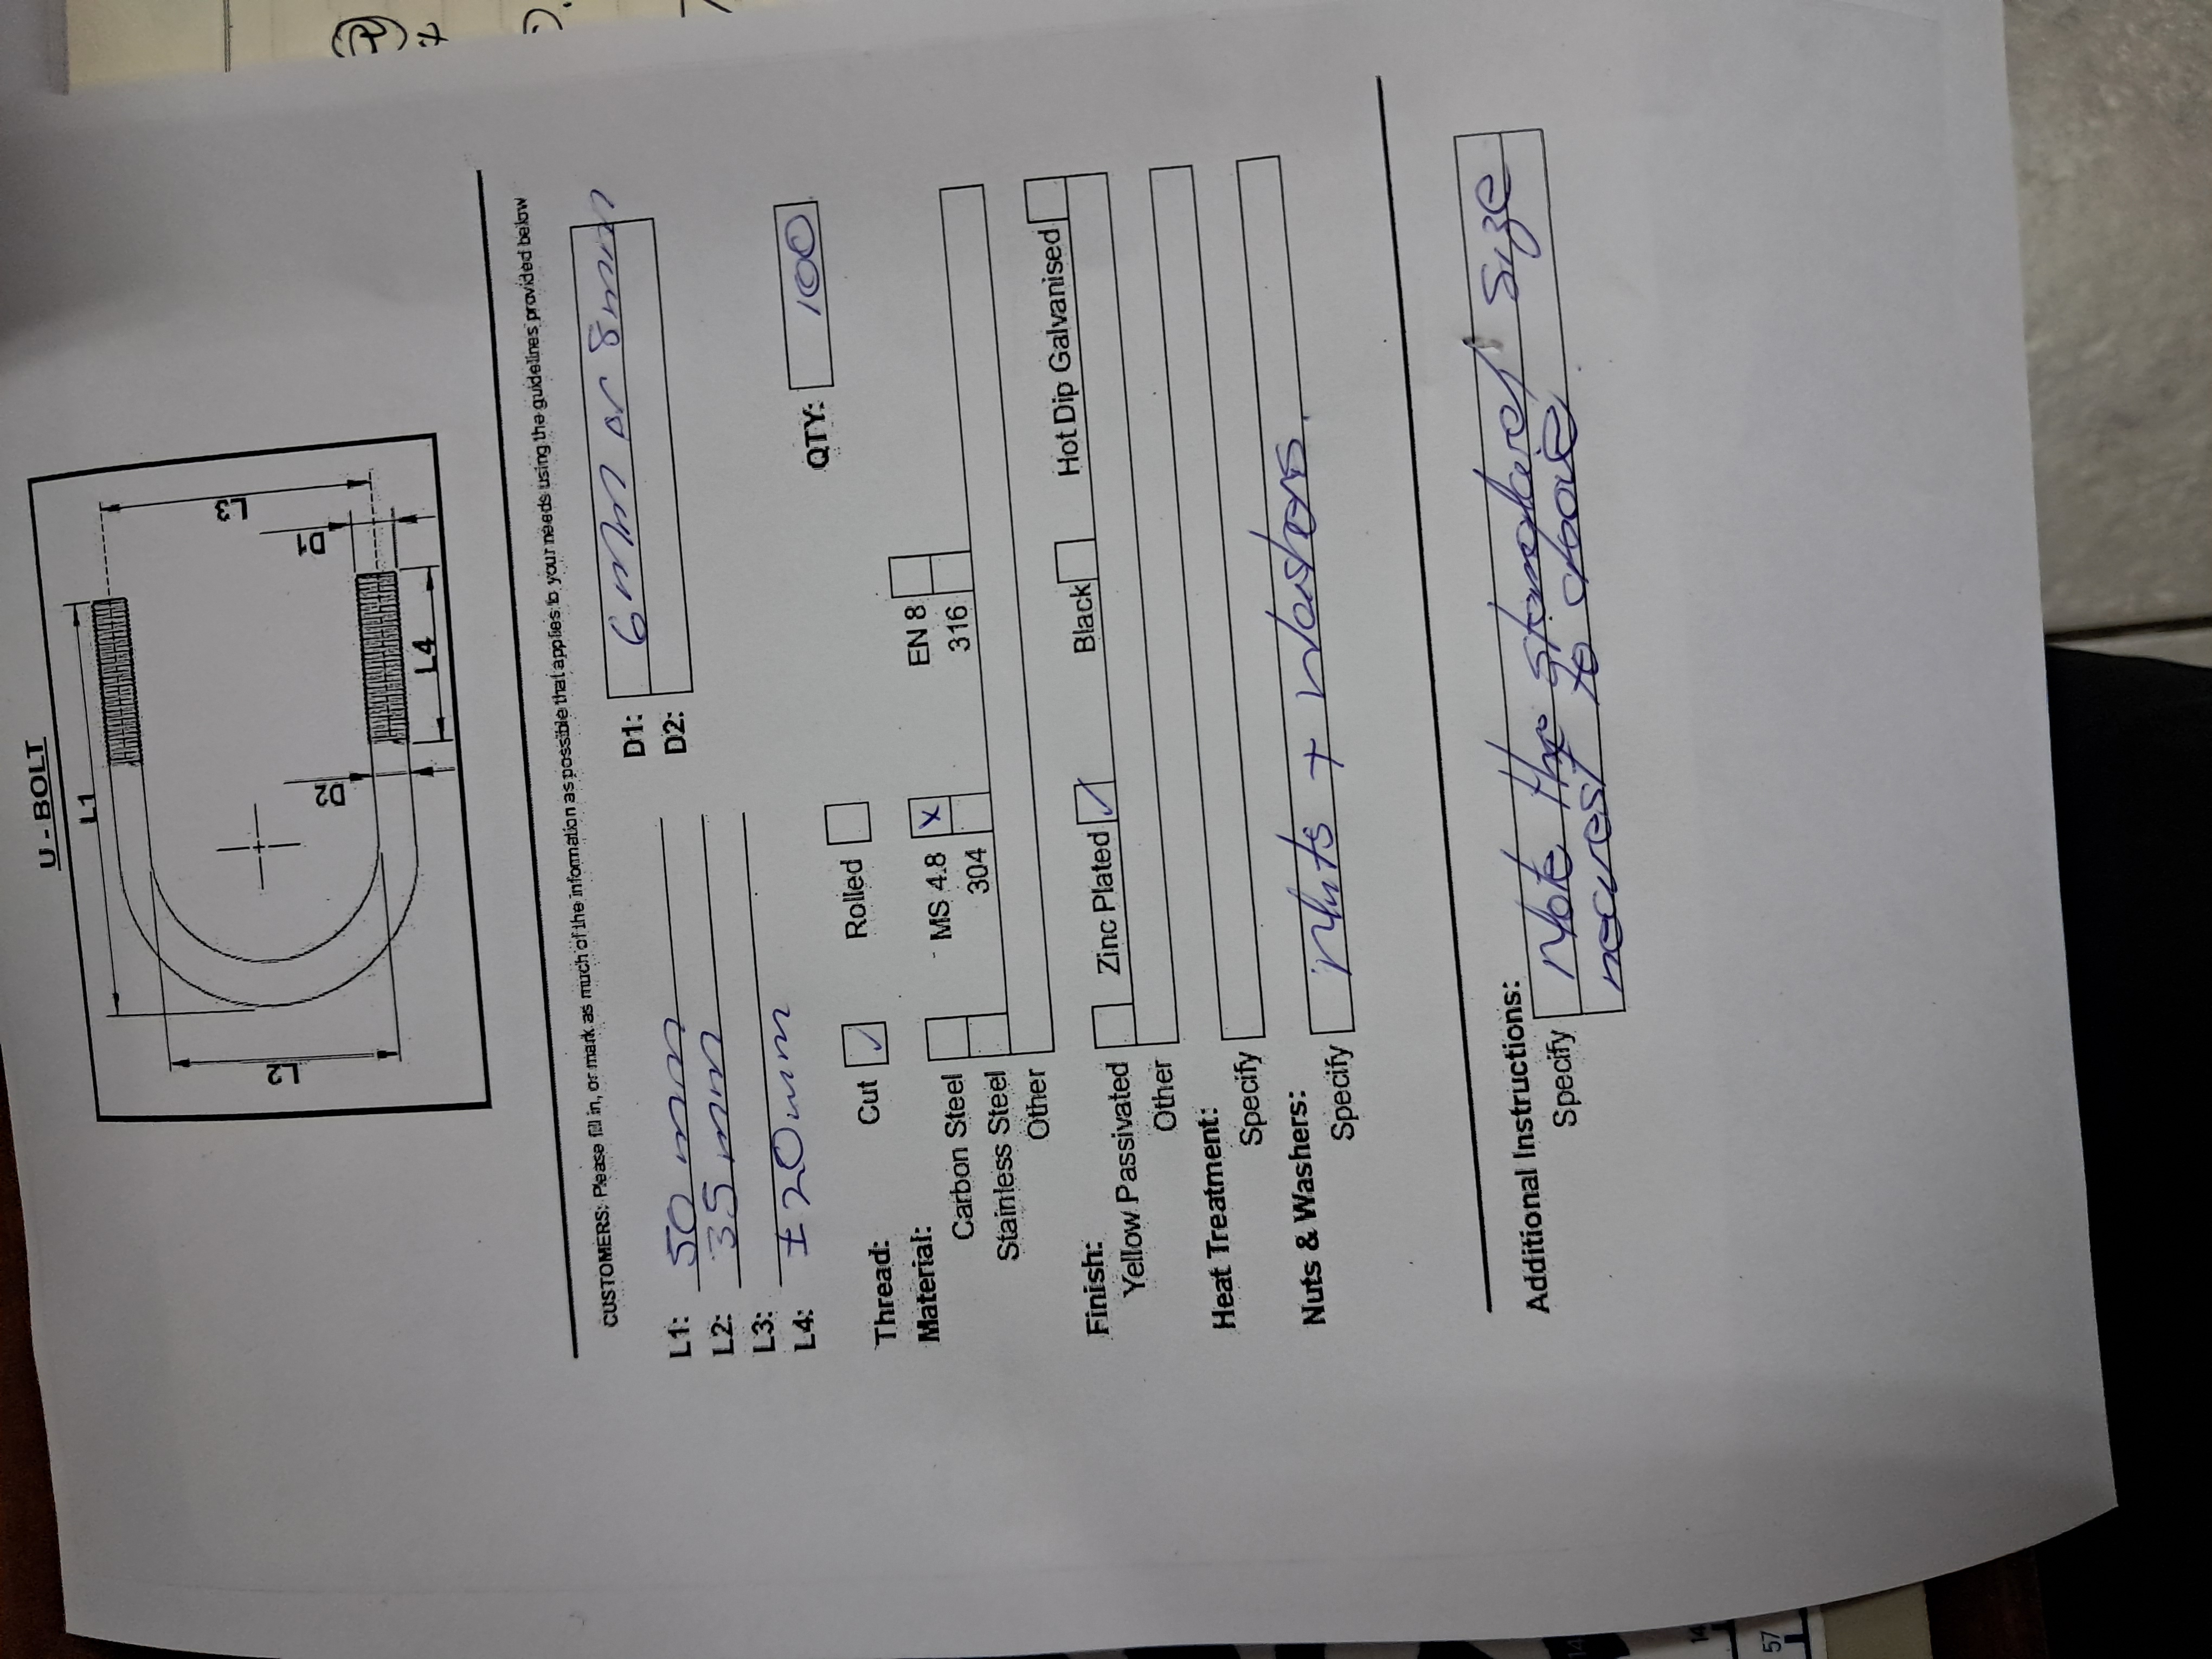 U - BOLT
L1
L2
L3
D2
D1
L4
CUSTOMERS: Please fill in, or mark as much of the information as possible that applies to your needs using the guidelines provided below
L1: 50 mm
D1: 6mm or 8mm
L2: 35mm
D2:
L3:
L4: ±20mm
QTY: 100
Thread: Cut ✓ Rolled
Material:
Carbon Steel MS 4.8 X EN 8
Stainless Steel 304 316
Other
Finish:
Yellow Passivated Zinc Plated ✓ Black Hot Dip Galvanised
Other
Heat Treatment:
Specify
Nuts & Washers:
Specify Nuts + Washers.
Additional Instructions:
Specify Note the standard size
nearest to above
14
14
57